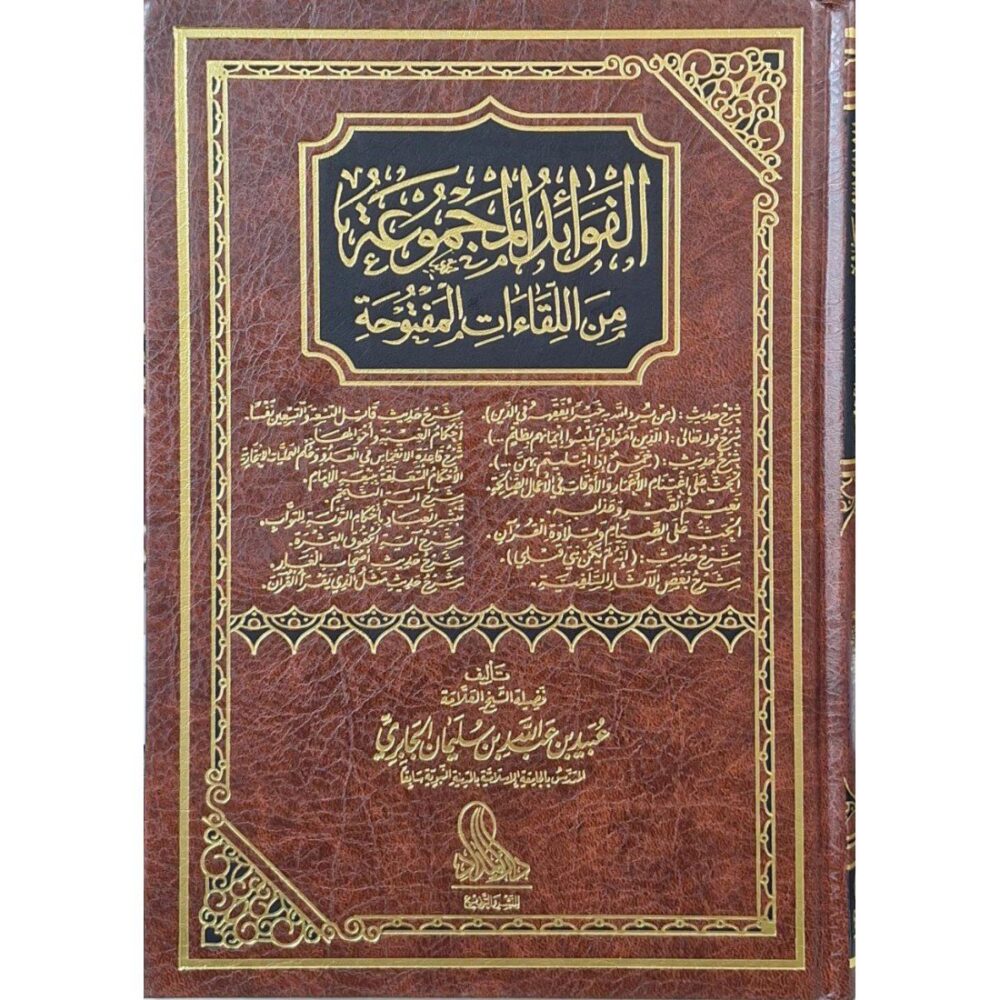 الفَوَائِدُ المَجْمُوعَةُ
مِنَ اللِّقَاءَاتِ المَفْتُوحَةِ
شَرْحُ حَدِيث: (مَن يُرِدِ اللَّه بِهِ خَيْرًا يُفَقِّهْهُ فِي الدِّين).
شَرْحُ قوله تعَالى: (الذين آمَنُوا وَلَمْ يَلْبِسُوا إيمَانَهُم بِظُلْمٍ ...).
شَرْحُ حَدِيث: (خَمْسٌ إذَا ابْتُلِيتُم بِهِنَّ ...).
الحَثّ عَلَى اغْتِنَامِ الأَعْمَارِ وَالأَوْقَاتِ فِي الأَعْمَالِ الصَّالِحَة.
نَعِيم القَبْر وعَذَابه.
الحَثّ عَلَى الصِّيَامِ وتِلَاوَة القُرْآن.
شَرْحُ حَدِيث: (إنَّهُ لَمْ يَكُنْ نَبِيٌّ قَبْلِي).
شَرْحُ بَعْضِ الآثَارِ السَّلَفِيَّة.
شَرْحُ حَدِيث قَاتِل التِّسْعَة والتِّسْعِين نَفْسًا.
أَحْكَامُ الغِيبَة وأحْوَالهَا
شَرْحُ قَاعِدَة الانْغِمَاس في العَدُوّ وحُكْم العَمَلِيَّات الانْتِحَارِيَّة
الأَحْكَام المُتَعَلِّقَة بِبَيْعَة الإمَام.
شَرْحُ آيَة
تَبْشِير العِبَاد بِأَحْكَام التَّوْبَة لِلتَّوَّاب.
شَرْحُ آيَة الحُقُوق العَشَرَة
شَرْحُ حَدِيث أَصْحَاب الغَار.
شَرْحُ حَدِيث مَثَلُ الَّذِي يَقْرَأ القُرْآن.
تَألِيف
فَضِيلَة الشَّيْخ العَلَّامَة
عُبَيْد بن عَبْدِ اللَّهِ بن سُلَيْمَان الجَابِرِيّ
المُدَرِّسُ بِالجَامِعَة الإسْلَامِيَّة بِالمَدِينَة النَّبَوِيَّة سَابِقًا
للنشر والتوزيع